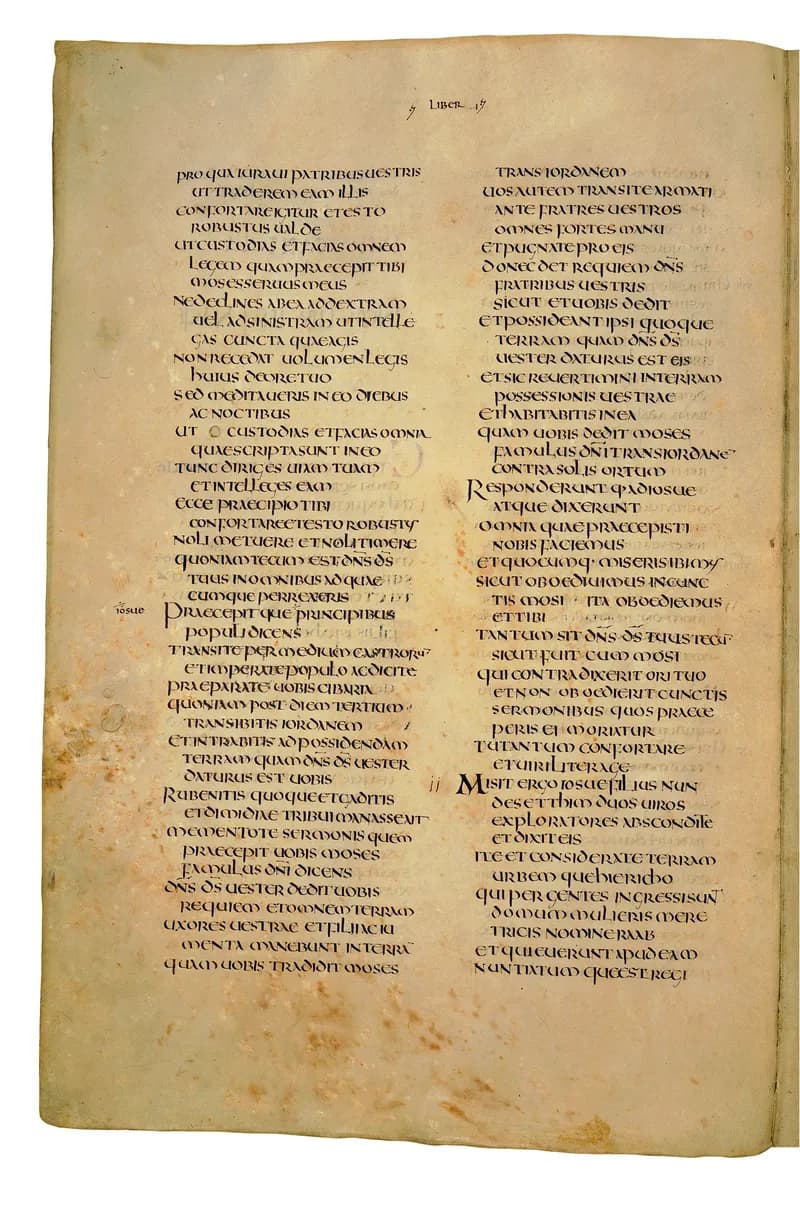 LIBER
PRO QUA IURAUI PATRIBUS UESTRIS
UT TRADEREM EAM ILLIS
CONFORTARE IGITUR ET ESTO
ROBUSTUS UALDE
UT CUSTODIAS ET FACIAS OMNEM
LEGEM QUAM PRAECEPIT TIBI
MOSES SERUUS MEUS
NE DECLINES AB EA AD DEXTRAM
UEL AD SINISTRAM UT INTELLE
GAS CUNCTA QUAE AGIS
NON RECEDAT UOLUMEN LEGIS
HUIUS DE ORE TUO
SED MEDITAUERIS IN EO DIEBUS
AC NOCTIBUS
UT CUSTODIAS ET FACIAS OMNIA
QUAE SCRIPTA SUNT IN EO
TUNC DIRIGES UIAM TUAM
ET INTELLEGES EAM
ECCE PRAECIPIO TIBI
CONFORTARE ET ESTO ROBUSTUS
NOLI METUERE ET NOLI TIMERE
QUONIAM TECUM EST DNS DS
TUUS IN OMNIBUS AD QUAE
CUMQUE PERREXERIS
IOSUE
PRAECEPITQUE PRINCIPIBUS
POPULI DICENS
TRANSITE PER MEDIUM CASTRORU
ET IMPERATE POPULO AC DICITE
PRAEPARATE UOBIS CIBARIA
QUONIAM POST DIEM TERTIUM
TRANSIBITIS IORDANEM
ET INTRABITIS AD POSSIDENDAM
TERRAM QUAM DNS DS UESTER
DATURUS EST UOBIS
RUBENITIS QUOQUE ET GADITIS
ET DIMIDIAE TRIBUI MANASSE AIT
MEMENTOTE SERMONIS QUEM
PRAECEPIT UOBIS MOSES
FAMULUS DNI DICENS
DNS DS UESTER DEDIT UOBIS
REQUIEM ET OMNEM TERRAM
UXORES UESTRAE ET FILII AC IU
MENTA MANEBUNT IN TERRA
QUAM UOBIS TRADIDIT MOSES
TRANS IORDANEM
UOS AUTEM TRANSITE ARMATI
ANTE FRATRES UESTROS
OMNES FORTES MANU
ET PUGNATE PRO EIS
DONEC DET REQUIEM DNS
FRATRIBUS UESTRIS
SICUT ET UOBIS DEDIT
ET POSSIDEANT IPSI QUOQUE
TERRAM QUAM DNS DS
UESTER DATURUS EST EIS
ET SIC REUERTIMINI IN TERRAM
POSSESSIONIS UESTRAE
ET HABITABITIS IN EA
QUAM UOBIS DEDIT MOSES
FAMULUS DNI TRANS IORDANE
CONTRA SOLIS ORTUM
RESPONDERUNTQ· AD IOSUE
ATQUE DIXERUNT
OMNIA QUAE PRAECEPISTI
NOBIS FACIEMUS
ET QUOCUMQ· MISERIS IBIMUS
SICUT OBOEDIUIMUS IN CUNC
TIS MOSI ITA OBOEDIEMUS
ET TIBI
TANTUM SIT DNS DS TUUS TECU
SICUT FUIT CUM MOSI
QUI CONTRADIXERIT ORI TUO
ET NON OBOEDIERIT CUNCTIS
SERMONIBUS QUOS PRAECE
PERIS EI MORIATUR
TU TANTUM CONFORTARE
ET UIRILITER AGE
II
MISIT ERGO IOSUE FILIUS NUN
DE SETTHIM DUOS UIROS
EXPLORATORES ABSCONDITE
ET DIXIT EIS
ITE ET CONSIDERATE TERRAM
URBEMQUE HIERICHO
QUI PERGENTES INGRESSI SUNT
DOMUM MULIERIS MERE
TRICIS NOMINE RAAB
ET QUIEUERUNT APUD EAM
NUNTIATUMQUE EST REGI